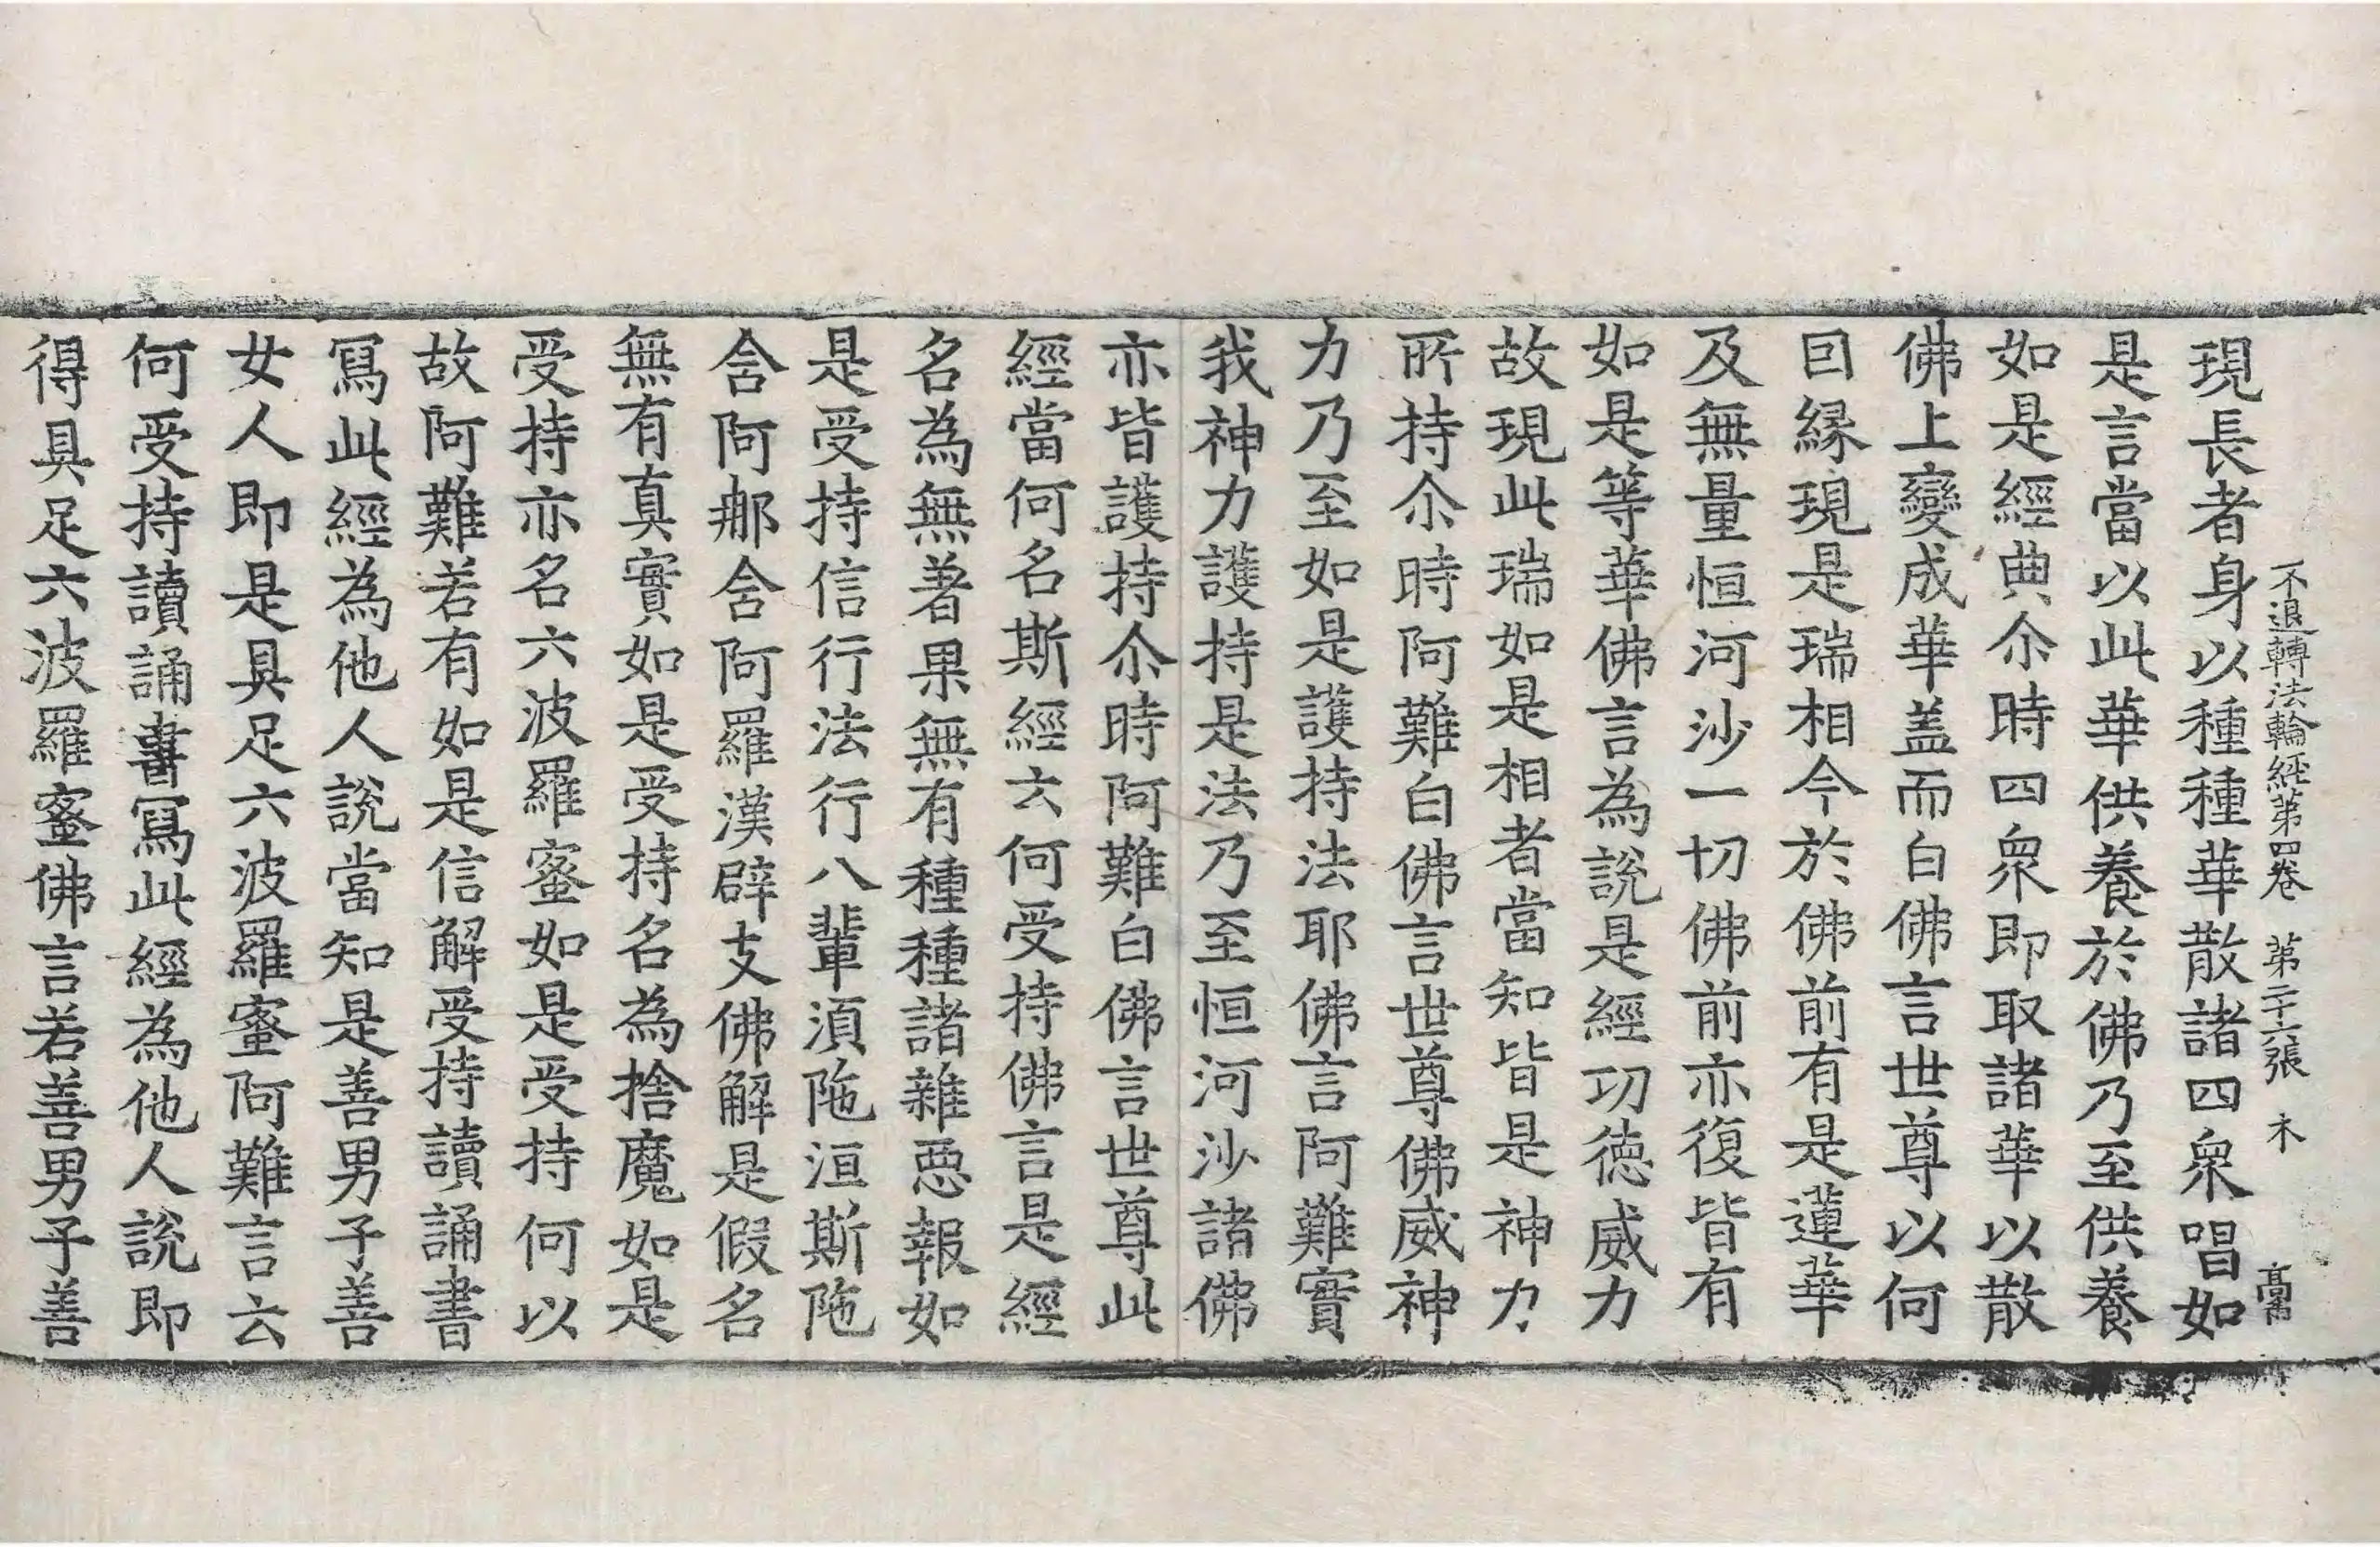 不退轉法輪經第四卷 第二十六張 木 髙
現長者身以種種華散諸四衆唱如
是言當以此華供養於佛乃至供養
如是經典尒時四衆即取諸華以散
佛上變成華盖而白佛言世尊以何
囙縁現是瑞相今於佛前有是蓮華
及無量恒河沙一切佛前亦復皆有
如是等華佛言為說是經功徳威力
故現此瑞如是相者當知皆是神力
所持尒時阿難白佛言世尊佛威神
力乃至如是護持法耶佛言阿難實
我神力護持是法乃至恒河沙諸佛
亦皆護持尒時阿難白佛言世尊此
經當何名斯經云何受持佛言是經
名為無著果無有種種諸雜惡報如
是受持信行法行八輩湏陁洹斯陁
含阿那含阿羅漢辟支佛解是假名
無有真實如是受持名為捨魔如是
受持亦名六波羅蜜如是受持何以
故阿難若有如是信解受持讀誦書
冩此經為他人說當知是善男子善
女人即是具足六波羅蜜阿難言云
何受持讀誦書冩此經為他人說即
得具足六波羅蜜佛言若善男子善